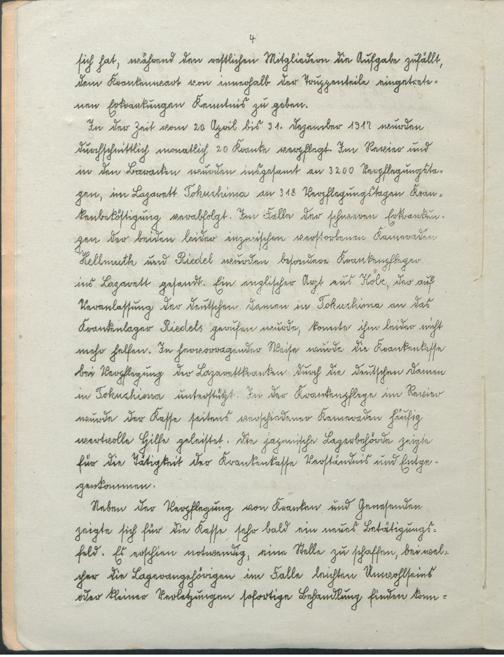 4
sich hat, während den restlichen Mitgliedern die Aufgabe zufällt,
dem Krankenwart von innerhalb der Truppenteile eingetrete-
nen Erkrankungen Kenntnis zu geben.
In der Zeit vom 20 April bis 31. Dezember 1917 wurden
durchschnittlich monatlich 20 Kranke verpflegt. Im Revier und
in den Baracken wurden insgesamt an 3200 Verpflegungsta-
gen, im Lazarett Tokuschima an 318 Verpflegungstagen Kran-
kenbeköstigung verabfolgt. Im Falle der schweren Erkrankun-
gen der beiden leider inzwischen verstorbenen Kameraden
Hellmuth und Riedel wurden besondere Krankenpfleger
ins Lazarett gesandt. Ein englischer Arzt aus Kobe, der auf
Veranlassung der deutschen Damen in Tokuschima an das
Krankenlager Riedels gerufen wurde, konnte ihm leider nicht
mehr helfen. In hervorragender Weise wurde die Krankenkasse
bei Verpflegung der Lazarettkranken durch die deutschen Damen
in Tokuschima unterstützt. In der Krankenpflege im Revier
wurde der Kasse seitens verschiedener Kameraden häufig
wertvolle Hilfe geleistet. Die japanische Lagerbehörde zeigte
für die Tätigkeit der Krankenkasse Verständnis und Entge-
genkommen.
Neben der Verpflegung von Kranken und Genesenden
zeigte sich für die Kasse sehr bald ein neues Betätigungs-
feld. Es erschien notwendig, eine Stelle zu schaffen, bei wel-
cher die Lagerangehörigen im Falle leichten Unwohlseins
oder kleiner Verletzungen sofortige Behandlung finden konn-